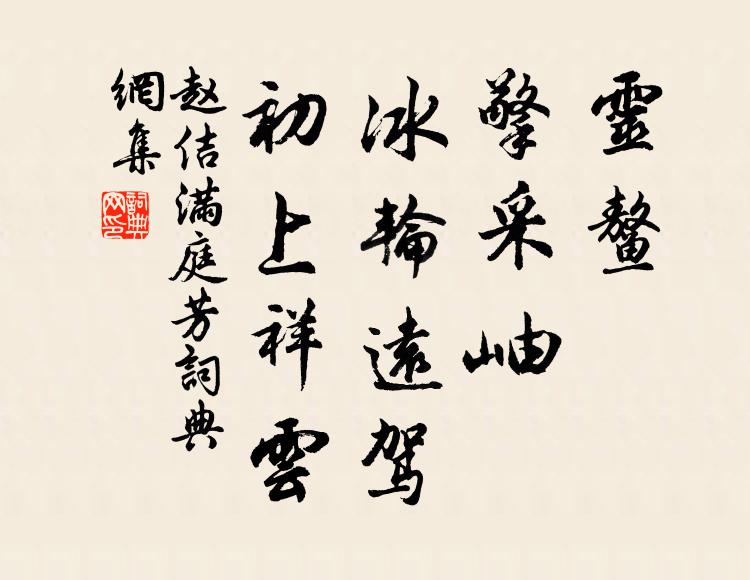 靈鼇
擎采岫
冰輪遠駕
初上祥雲
赵佶满庭芳詞典
網集
詞典
网印